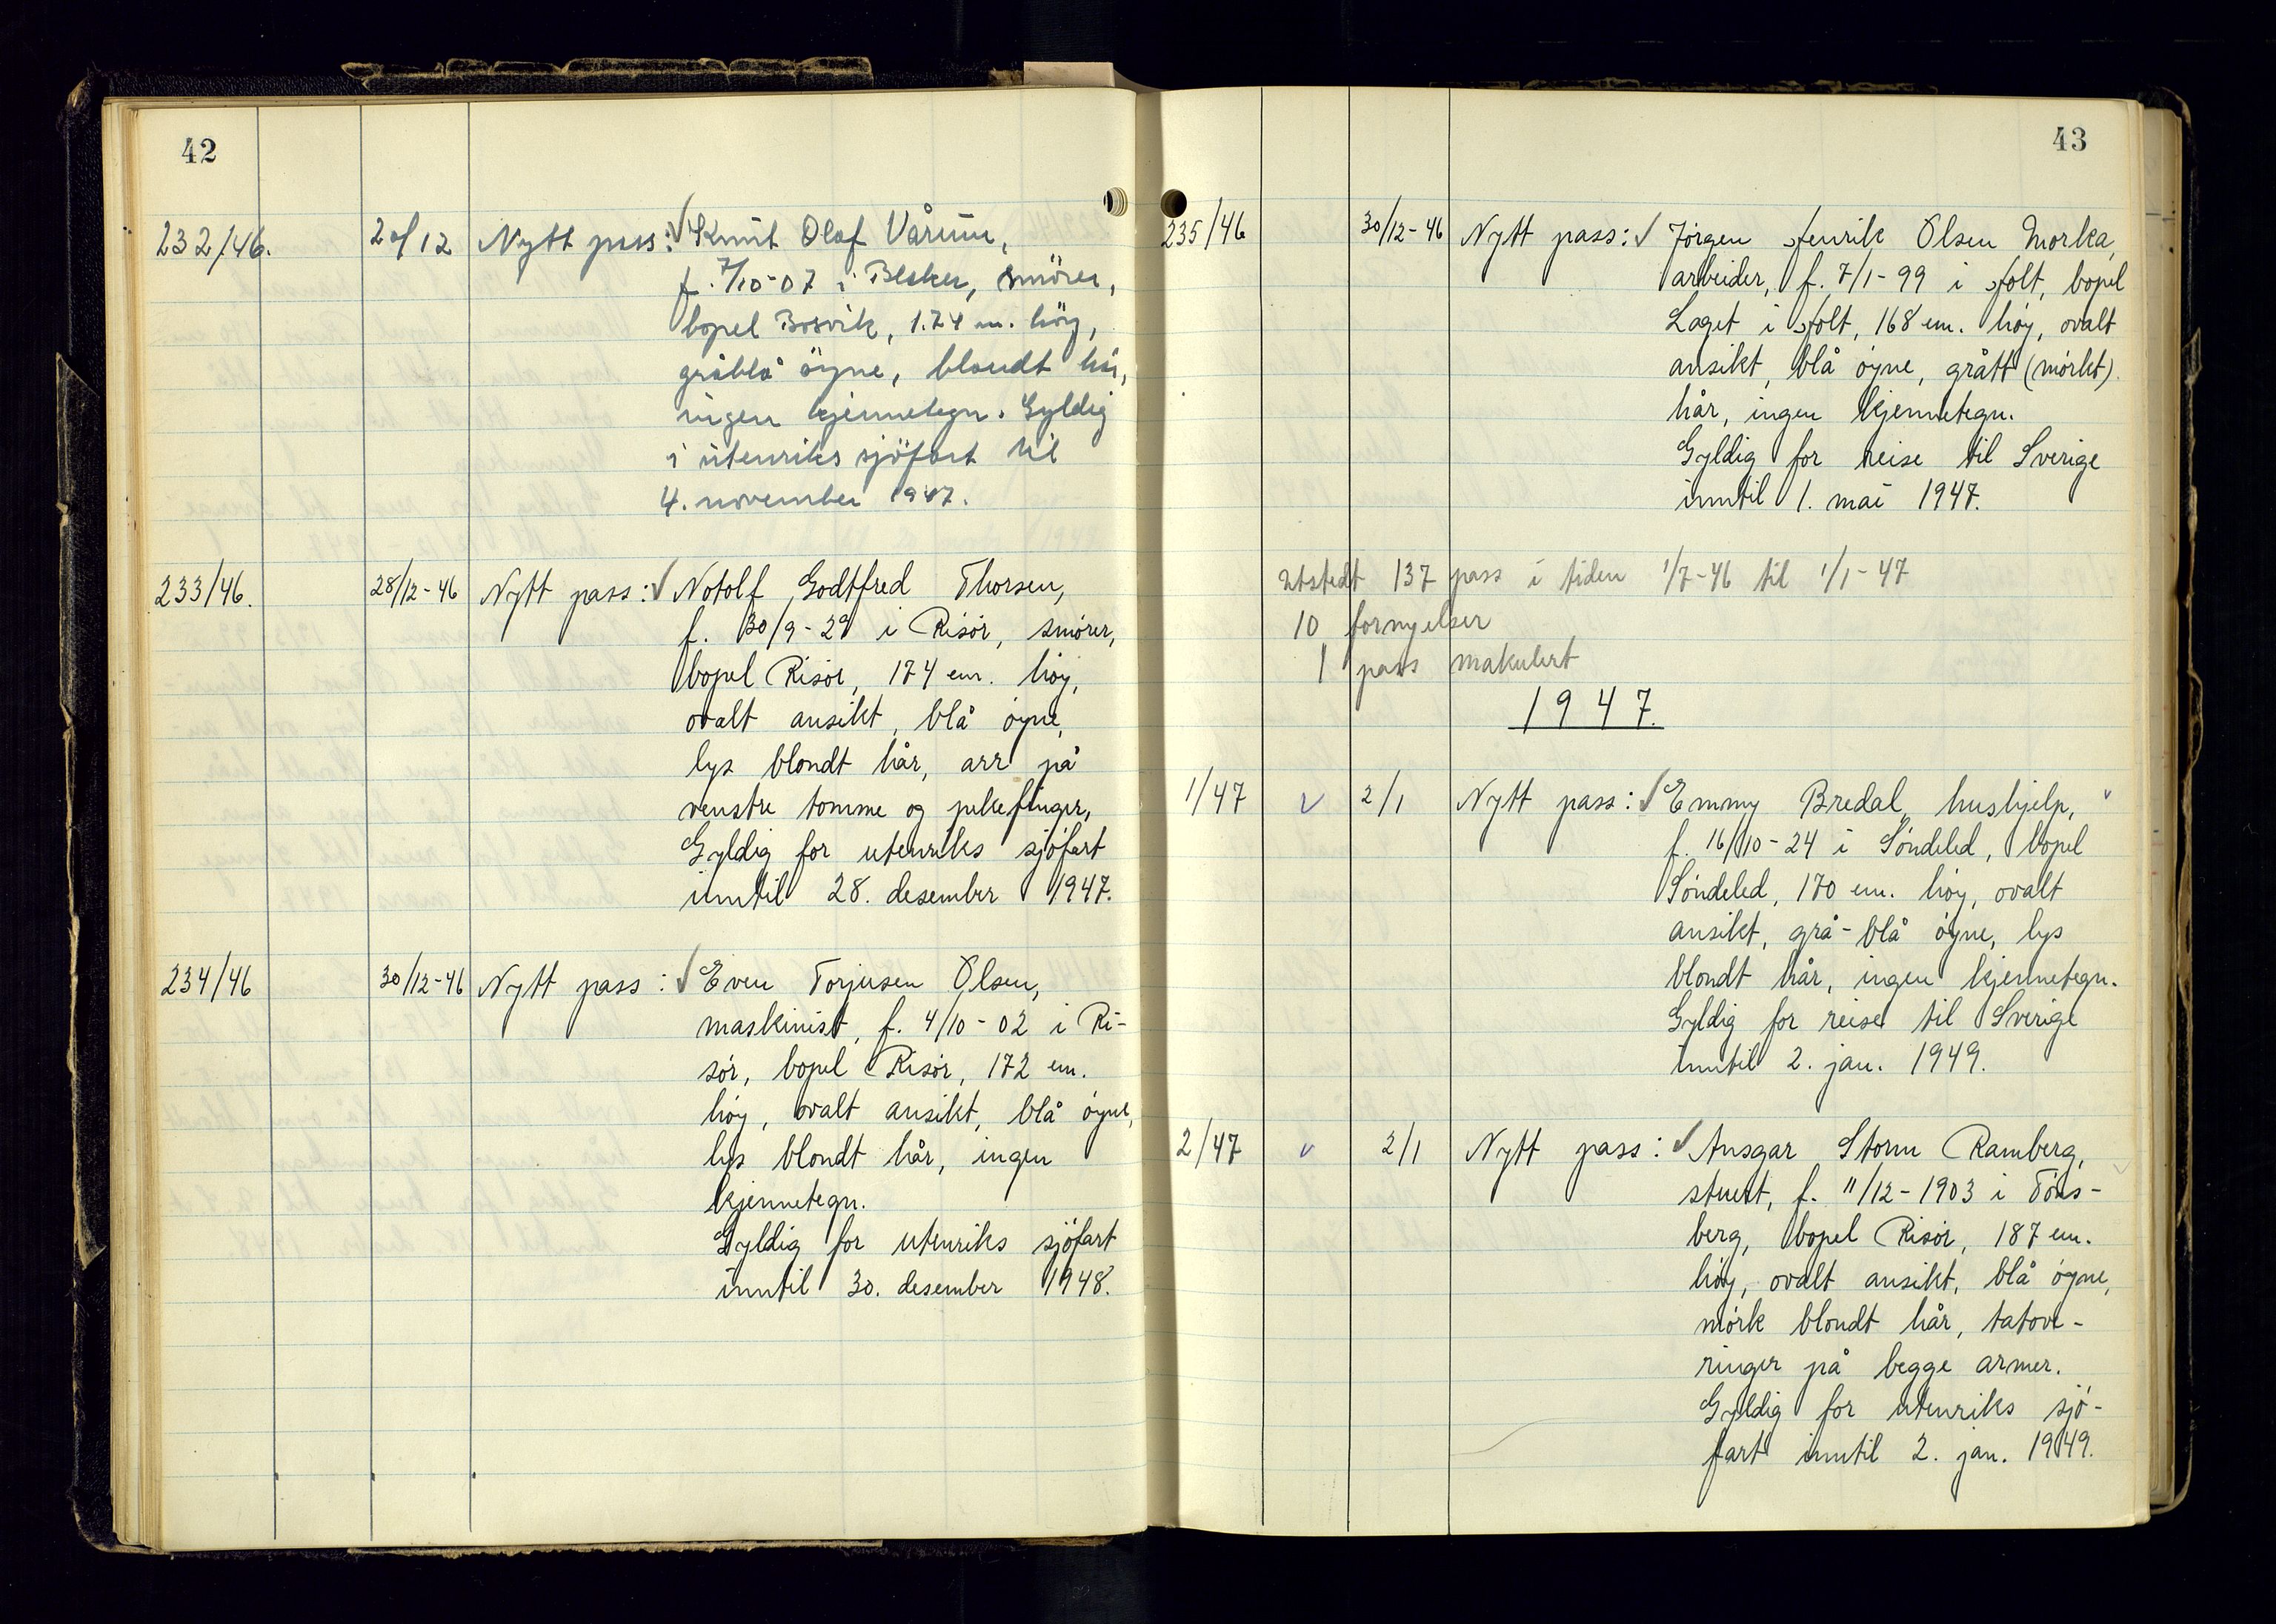 42
232/46. 20/12 Nytt pass: Knut Olaf Vårum,
f. 7/10-07 i Bleker, smörer,
bopel Bosvik, 1.74 m. höy,
gråblå öyne, blondt hår,
ingen kjennetegn. Gyldig
i utenriks sjöfart til
4. november 1947.
233/46. 28/12-46 Nytt pass: Notolf Godtfred Thorsen,
f. 30/9-29 i Risör, smörer,
bopel Risör, 174 cm. höy,
ovalt ansikt, blå öyne,
lys blondt hår, arr på
venstre tomme og pekefinger,
Gyldig for utenriks sjöfart
inntil 28. desember 1947.
234/46 30/12-46 Nytt pass: Even Torjusen Olsen,
maskinist, f. 4/10-02 i Ri-
sör, bopel Risör, 172 cm.
höy, ovalt ansikt, blå öyne,
lys blondt hår, ingen
kjennetegn.
Gyldig for utenriks sjöfart
inntil 30. desember 1948.
43
235/46 30/12-46 Nytt pass: Jörgen Henrik Olsen Morka,
arbeider, f. 7/1-99 i Holt, bopel
Laget i Holt, 168 cm. höy, ovalt
ansikt, blå öyne, grått (mörkt)
hår, ingen kjennetegn.
Gyldig for reise til Sverige
inntil 1. mai 1947.
Utstedt 137 pass i tiden 1/7-46 til 1/1-47
10 fornyelser
1 pass makulert
1947.
1/47 2/1 Nytt pass: Emmy Bredal, hushjelp,
f. 16/10-24 i Söndeled, bopel
Söndeled, 170 cm. höy, ovalt
ansikt, grå-blå öyne, lys
blondt hår, ingen kjennetegn.
Gyldig for reise til Sverige
inntil 2. jan. 1949.
2/47 2/1 Nytt pass: Ansgar Storm Ramberg,
stuert, f. 11/12-1903 i Töns-
berg, bopel Risör, 187 cm.
höy, ovalt ansikt, blå öyne,
mörk blondt hår, tatove-
ringer på begge armer.
Gyldig for utenriks sjö-
fart inntil 2. jan. 1949.